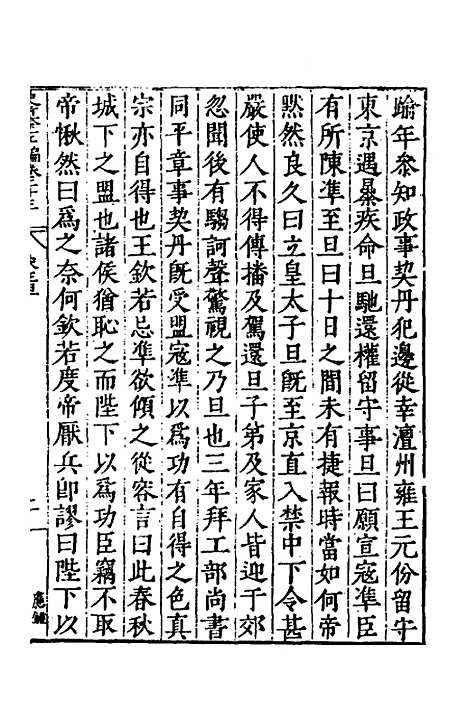 踰年叅知政事契丹犯邊從幸澶州雍王元份留守
東京遇暴疾命旦馳還權留守事旦曰願宣寇凖臣
有所陳凖至旦曰十日之間未有捷報時當如何帝
黙然良久曰立皇太子旦旣至京直入禁中下令甚
嚴使人不得傳播及駕還旦子第及家人皆迎于郊
忽聞後有騶訶聲驚視之乃旦也三年拜工部尚書
同平章事契丹旣受盟寇凖以爲功有自得之色真
宗亦自得也王欽若忌凖欲傾之從容言曰此春秋
城下之盟也諸侯猶恥之而陛下以爲功臣竊不取
帝愀然曰爲之奈何欽若度帝厭兵卽謬曰陛下以